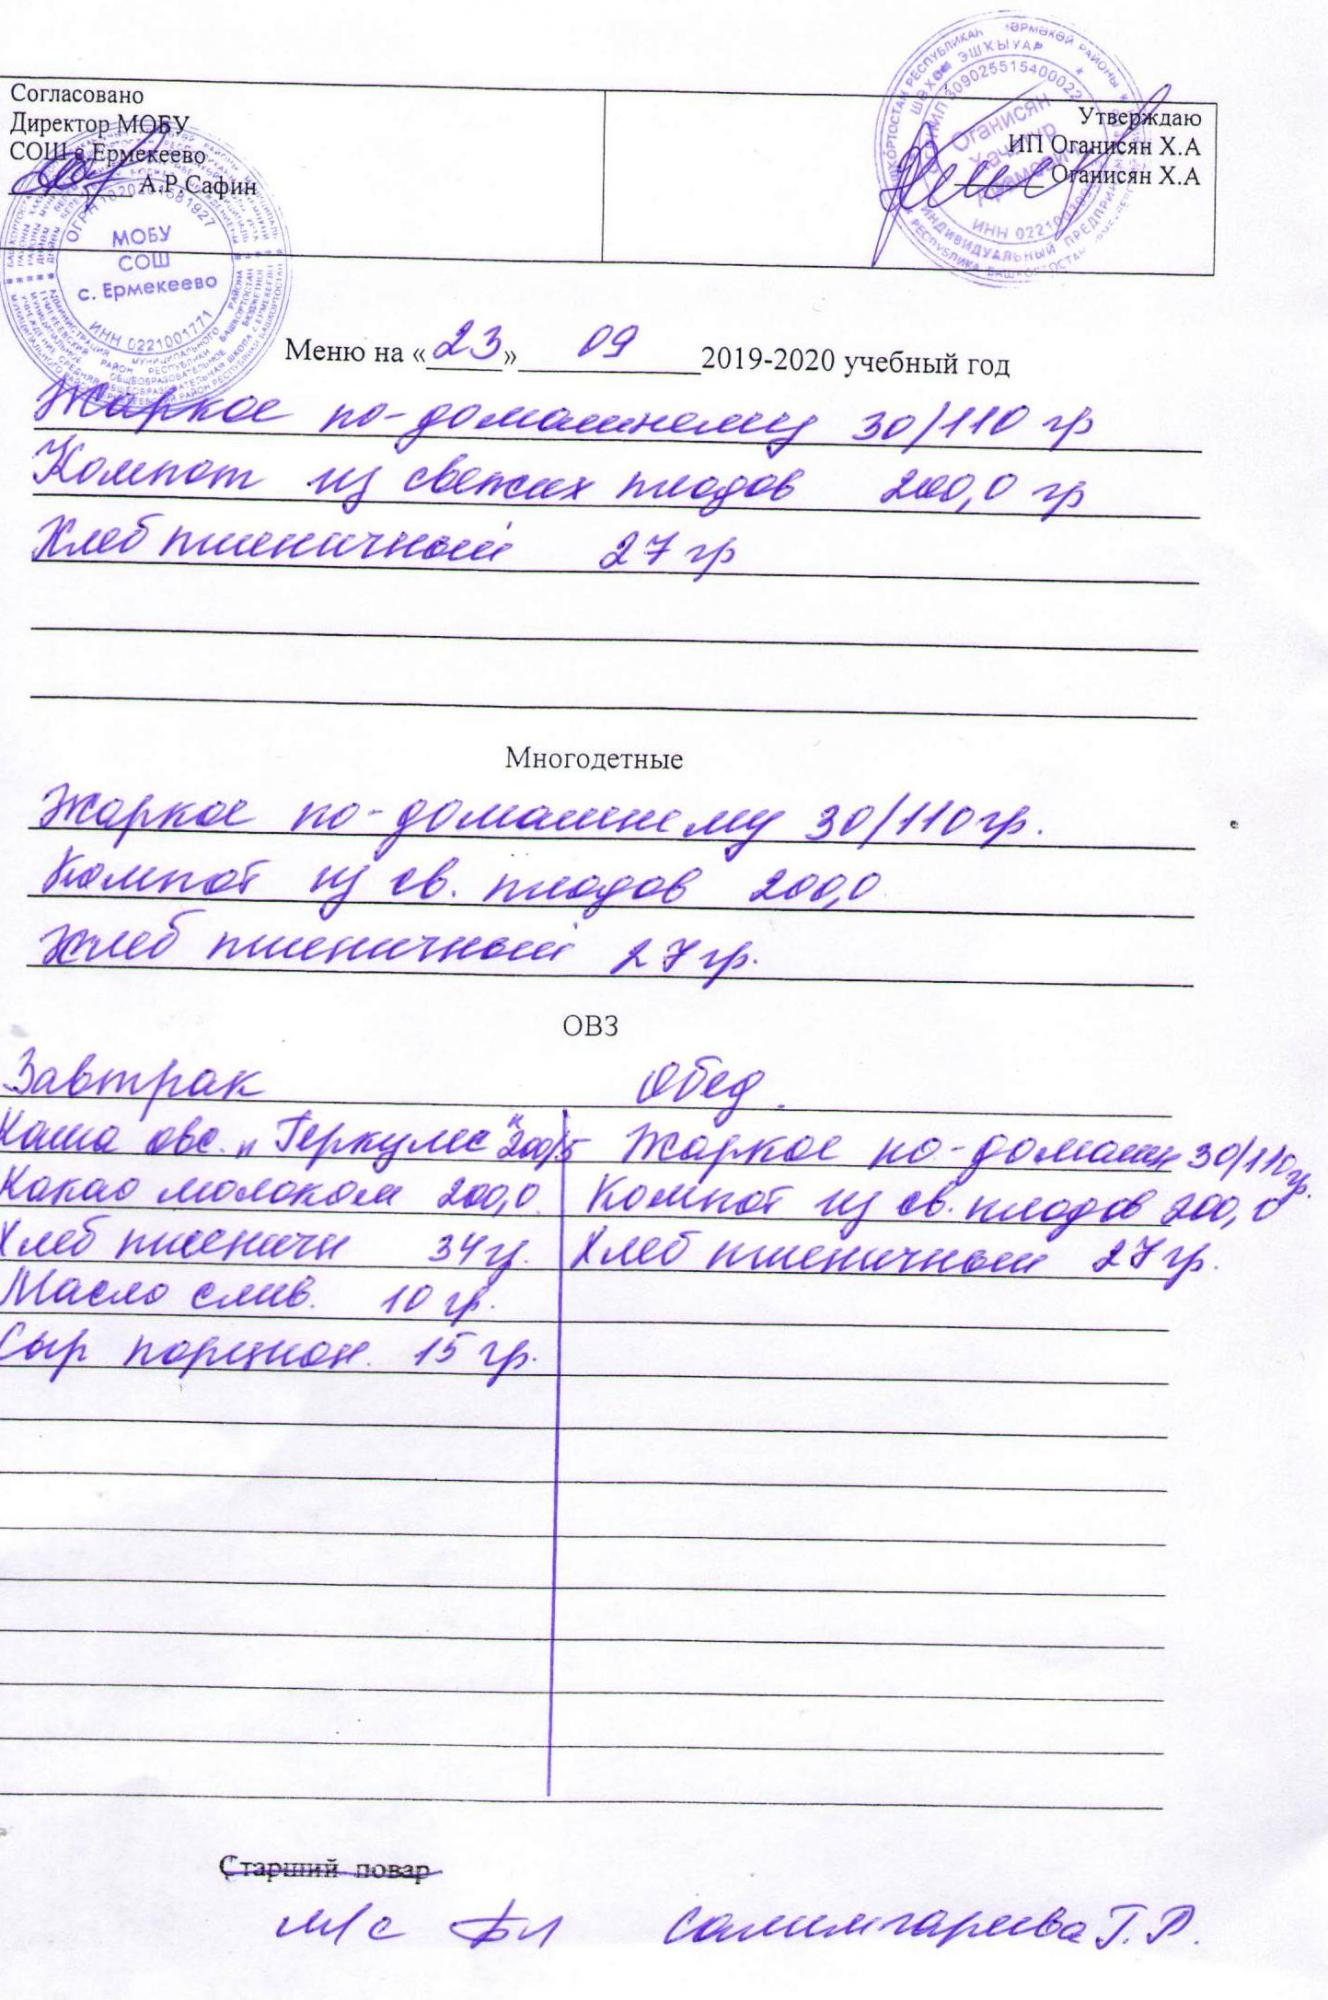 Согласовано
Директор МОБУ
СОШ с.Ермекеево
А.Р.Сафин
Утверждаю
ИП Оганисян Х.А
Оганисян Х.А
МОБУ
СОШ
с. Ермекеево
ИНН 0221001771
Меню на «23» 09 2019-2020 учебный год
Жаркое по-домашнему 30/110 гр
Компот из свежих плодов 200,0 гр
Хлеб пшеничный 27 гр
Многодетные
Жаркое по-домашнему 30/110 гр.
Компот из св. плодов 200,0
Хлеб пшеничный 27 гр.
ОВЗ
Завтрак Обед.
Каша овс. „Геркулес" 200/5 Жаркое по-домашн 30/110 гр.
Какао молоком 200,0. Компот из св. плодов 200,0
Хлеб пшеничн 34 гр. Хлеб пшеничный 27 гр.
Масло слив. 10 гр.
Сыр порцион. 15 гр.
Старший повар
м/с Салимгареева Г.Р.